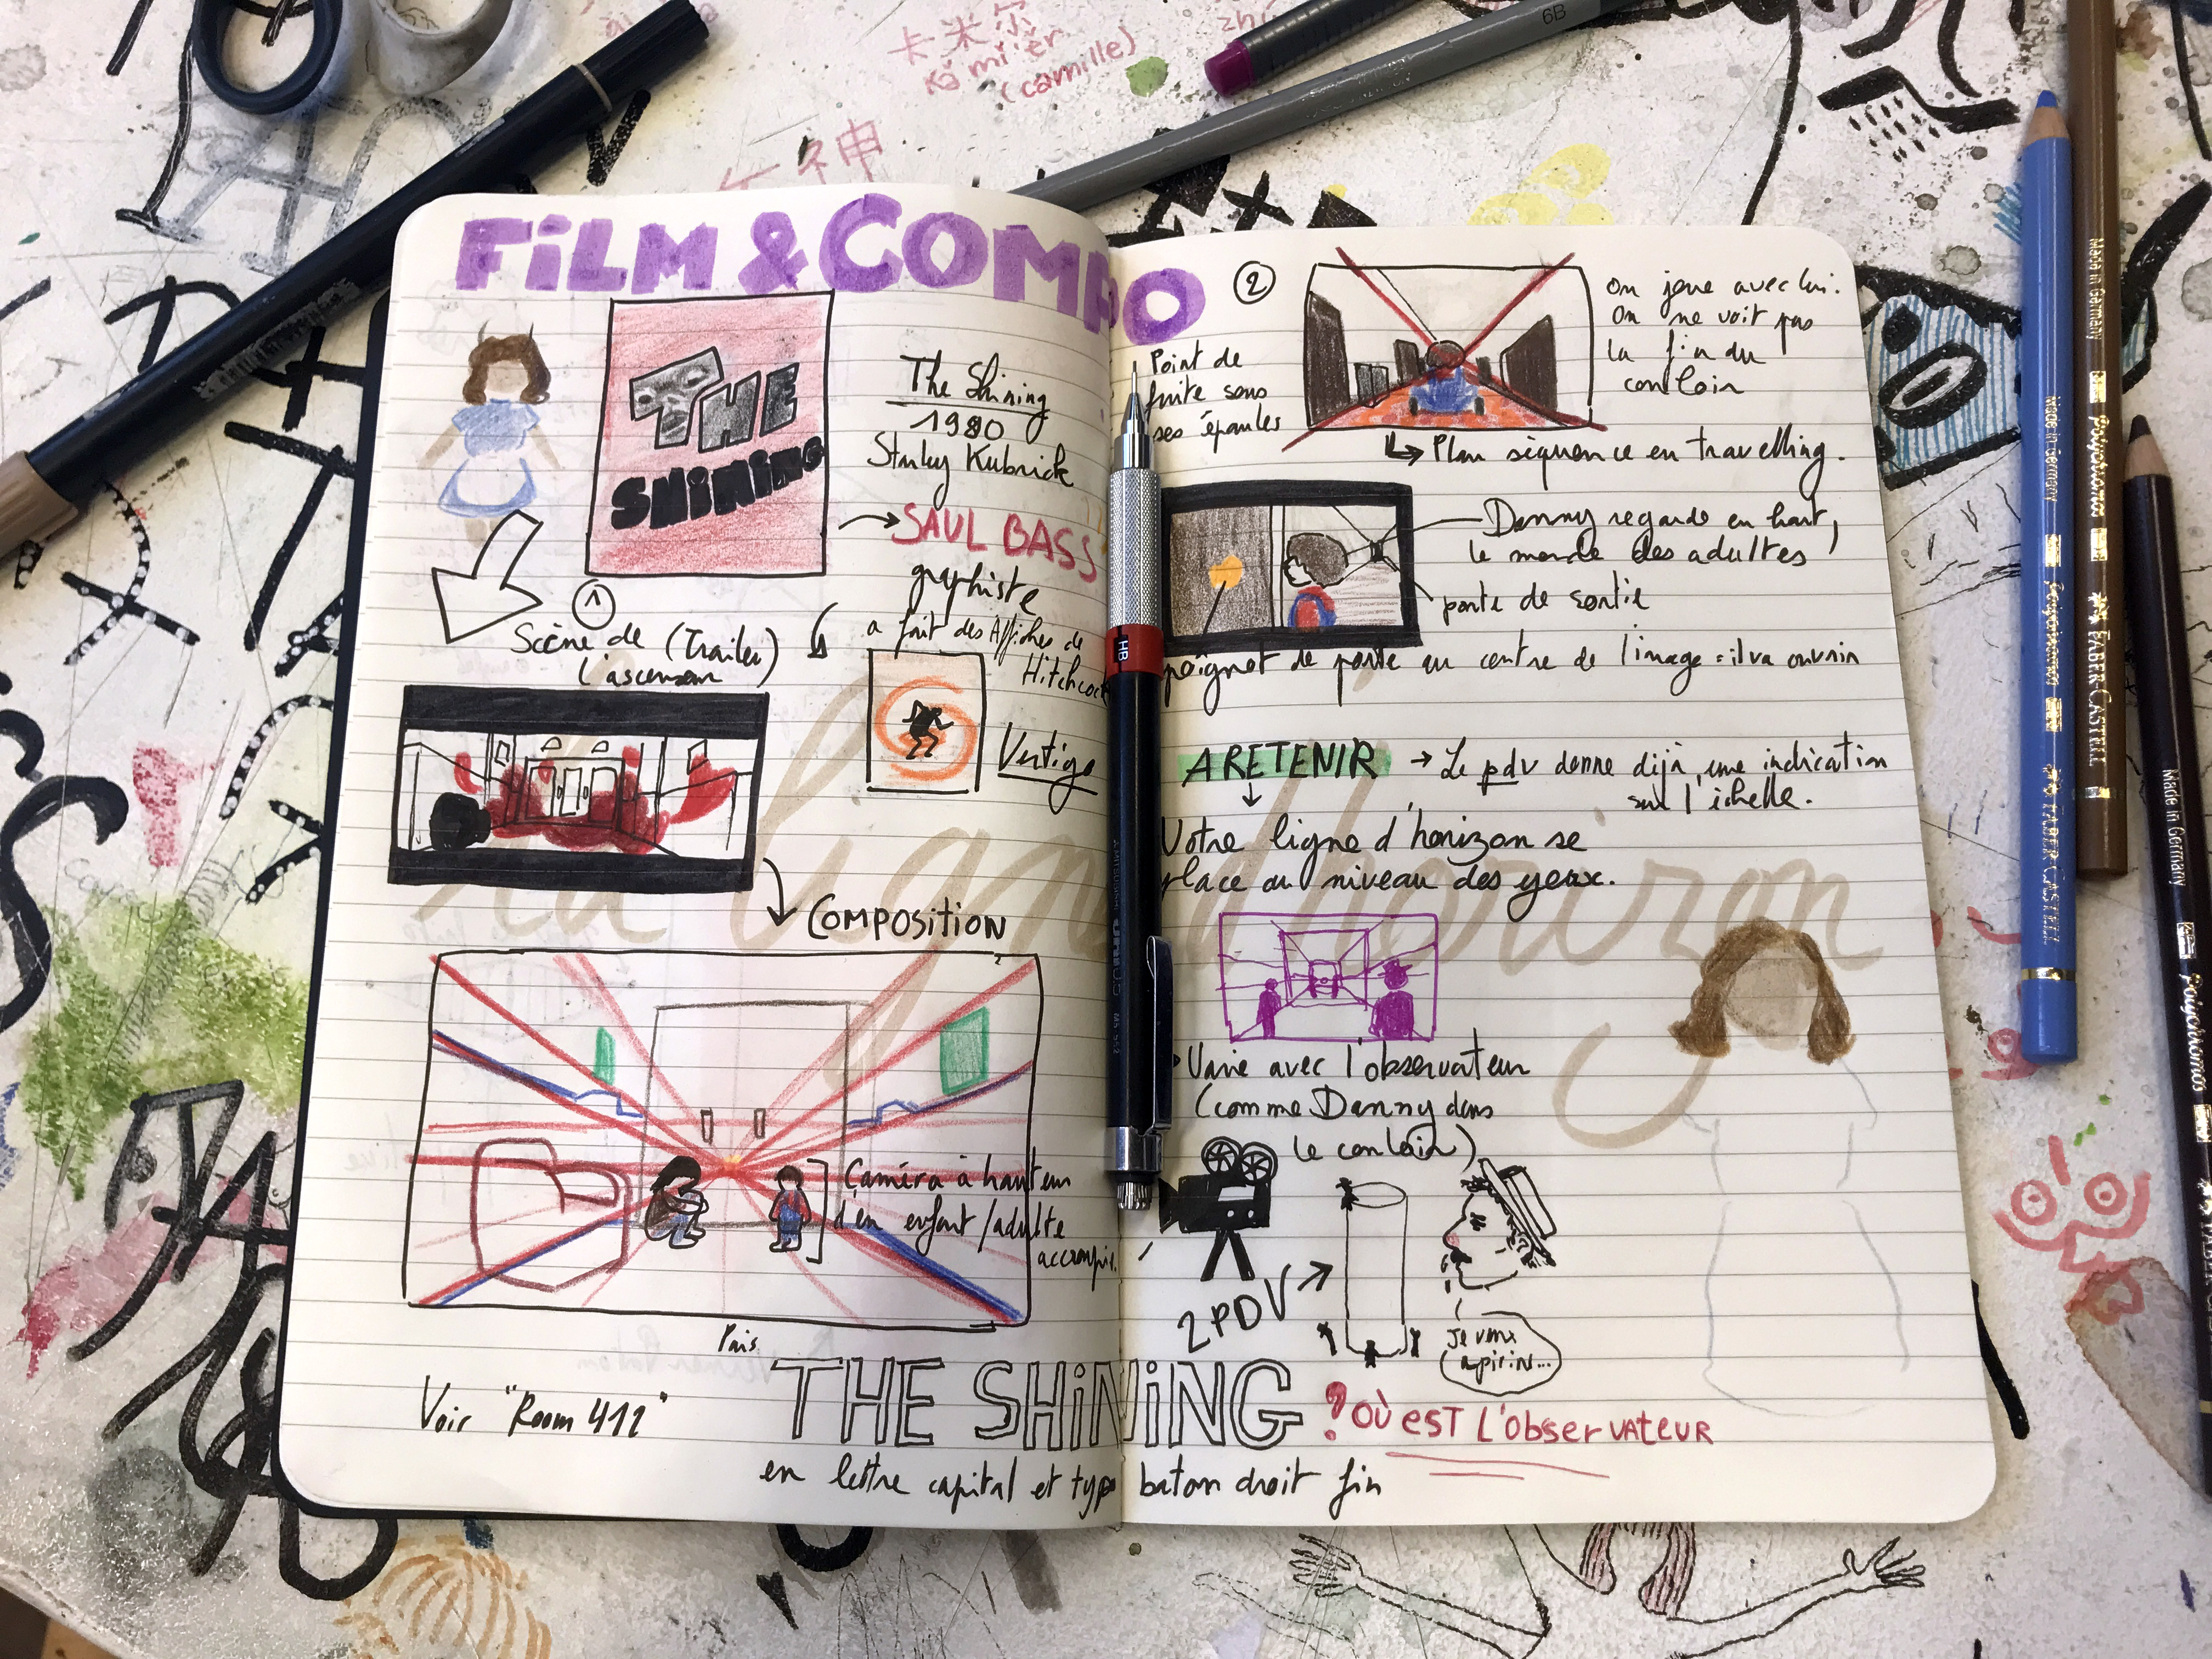 卡米尔
kǎ mǐ ěr
(camille)
神
6B
FiLM & COMPO
THE
SHiNiNG
The Shining
1980
Stanley Kubrick
→ SAUL BASS
graphiste
a fait des Affiches de
Hitchcock
Vertigo
①
Scène de (Trailer)
l'ascenseur
COMPOSITION
la ligne d'horizon
Caméra à hauteur
d'un enfant/adulte
accroupi.
Puis
Voir "Room 411"
THE SHiNiNG
en lettre capital et typo baton droit fin
②
Point de
fuite sous
ses épaules
On joue avec lui.
On ne voit pas
la fin du
couloir
Plan séquence en travelling.
Danny regarde en haut,
le monde des adultes
porte de sortie
poignet de porte au centre de l'image = il va ouvrir
A RETENIR → Le pdv donne déjà une indication
sur l'échelle.
Votre ligne d'horizon se
place au niveau des yeux.
Varie avec l'observateur
(comme Danny dans
le couloir)
2 PDV
Je veux
? OÙ EST L'OBSERVATEUR
HB
Made in Germany
Polychromos
FABER-CASTELL
Made in Germany
Polychromos
FABER-CASTELL
Made in Germany
Polychromos